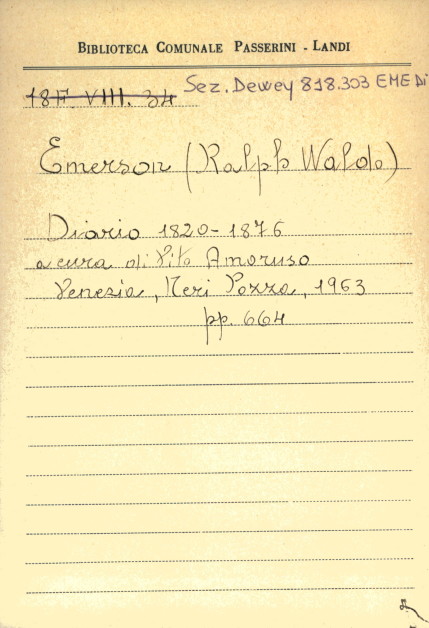 BIBLIOTECA COMUNALE PASSERINI - LANDI
18F. VIII. 34 Sez. Dewey 818.303 EME Di
Emerson (Ralph Waldo)
Diario 1820-1876
a cura di Vito Amoruso
Venezia, Neri Pozza, 1963
pp. 664